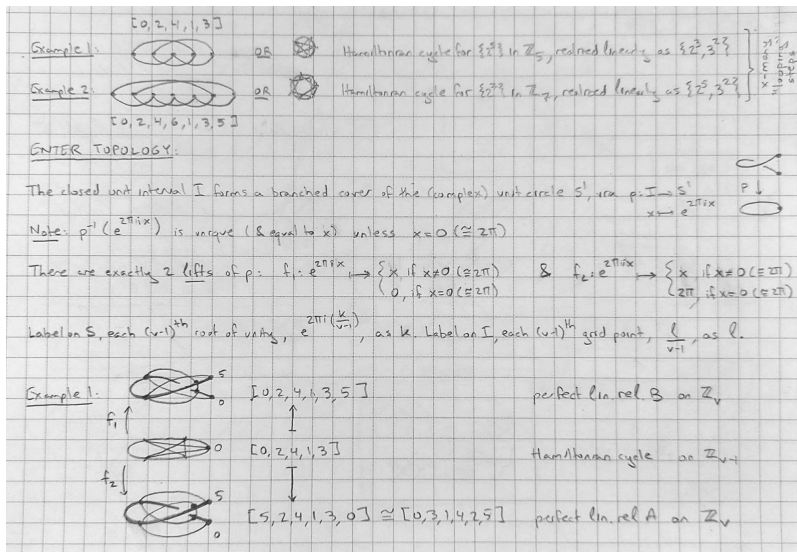 [0,2,4,1,3]
Example 1: OR Hamiltonian cycle for {2⁵} in ℤ₅, realized linearly as {2³,3²}
Example 2: OR Hamiltonian cycle for {2⁷} in ℤ₇, realized linearly as {2⁵,3²}
[0,2,4,6,1,3,5]
ENTER TOPOLOGY:
The closed unit interval I forms a branched cover of the (complex) unit circle S', via p: I → S'
x ↦ e^{2πix}
P
Note: p⁻¹(e^{2πix}) is unique (& equal to x) unless x=0 (≅2π)
There are exactly 2 lifts of p: f₁: e^{2πix} ↦ { x, if x≠0 (≅2π) & f₂: e^{2πix} ↦ { x, if x≠0 (≅2π)
0, if x=0 (≅2π) 2π, if x=0 (≅2π)
Label on S, each (v-1)ᵗʰ root of unity, e^{2πi(k/v-1)}, as k. Label on I, each (v-1)ᵗʰ grid point, l/v-1, as l.
Example 1. 5 [0,2,4,1,3,5] perfect lin. rel B on ℤᵥ
0
f₁
0 [0,2,4,1,3] Hamiltonian cycle on ℤᵥ₋₁
f₂
5
[5,2,4,1,3,0] ≅ [0,3,1,4,2,5] perfect lin. rel A on ℤᵥ
0